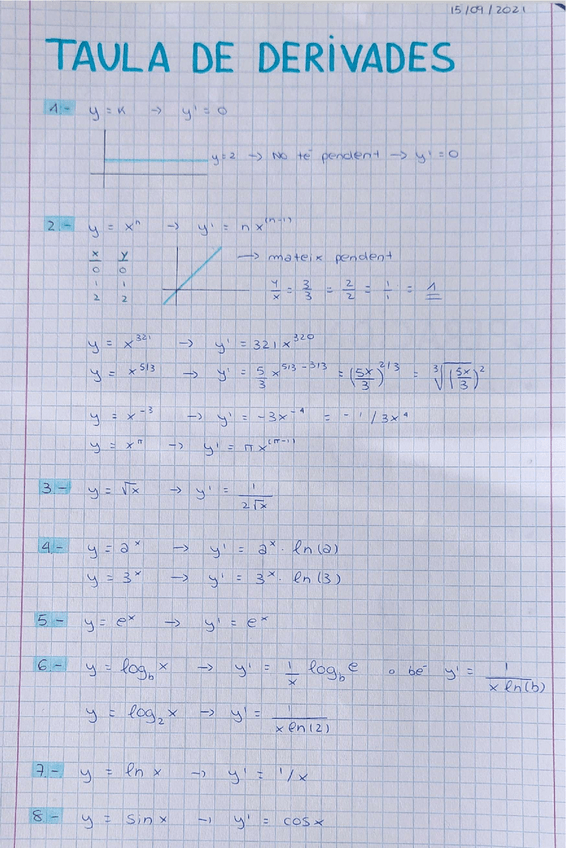 15/09/2021
TAULA DE DERIVADES
1.- y = K → y' = 0
y=2 → No té pendent → y' = 0
2.- y = xⁿ → y' = n x⁽ⁿ⁻¹⁾
x y → mateix pendent
0 0
1 1 y/x = 3/3 = 2/2 = 1/1 = 1
2 2
y = x³²¹ → y' = 321 x³²⁰
y = x^5/3 → y' = 5/3 x^5/3-3/3 = (5x/3)^2/3 = ³√(5x/3)²
y = x⁻³ → y' = -3x⁻⁴ = -1/3x⁴
y = x^π → y' = π x^(π-1)
3.- y = √x → y' = 1/2√x
4.- y = 2ˣ → y' = 2ˣ · ln(2)
y = 3ˣ → y' = 3ˣ · ln(3)
5.- y = eˣ → y' = eˣ
6.- y = log_b x → y' = 1/x log_b e o bé y' = 1/x ln(b)
y = log₂ x → y' = 1/x ln(2)
7.- y = ln x → y' = 1/x
8.- y = sin x → y' = cos x